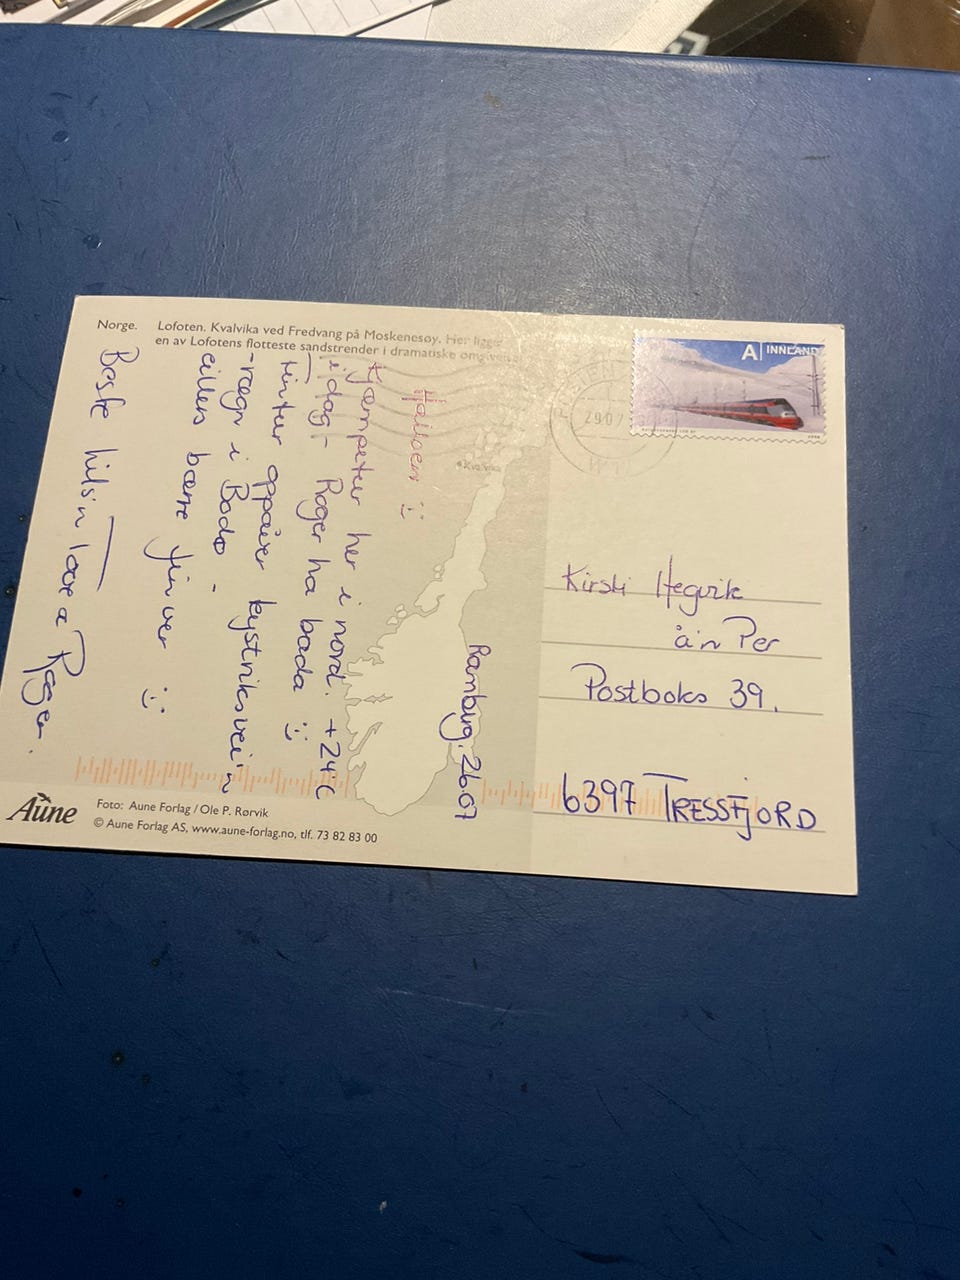 Norge. Lofoten. Kvalvika ved Fredvang på Moskenesøy. Her ligger
en av Lofotens flotteste sandstrender i dramatiske omgivelser
A INNLAND
2907
Kvalvika
Ramberg, 26.07
Halloen :)
Kjæmpetur her i nord. +24°C
idag - Roger ha bada :)
Tintur oppåver kystriksvei'n
-rægn i Bodø -
eillers bærre finver :)
Beste hils'n Tove å Roger.
Kirsti Hegvik
å'n Per
Postboks 39.
6397 TRESSFJORD
Aune
Foto: Aune Forlag / Ole P. Rørvik
© Aune Forlag AS, www.aune-forlag.no, tlf. 73 82 83 00